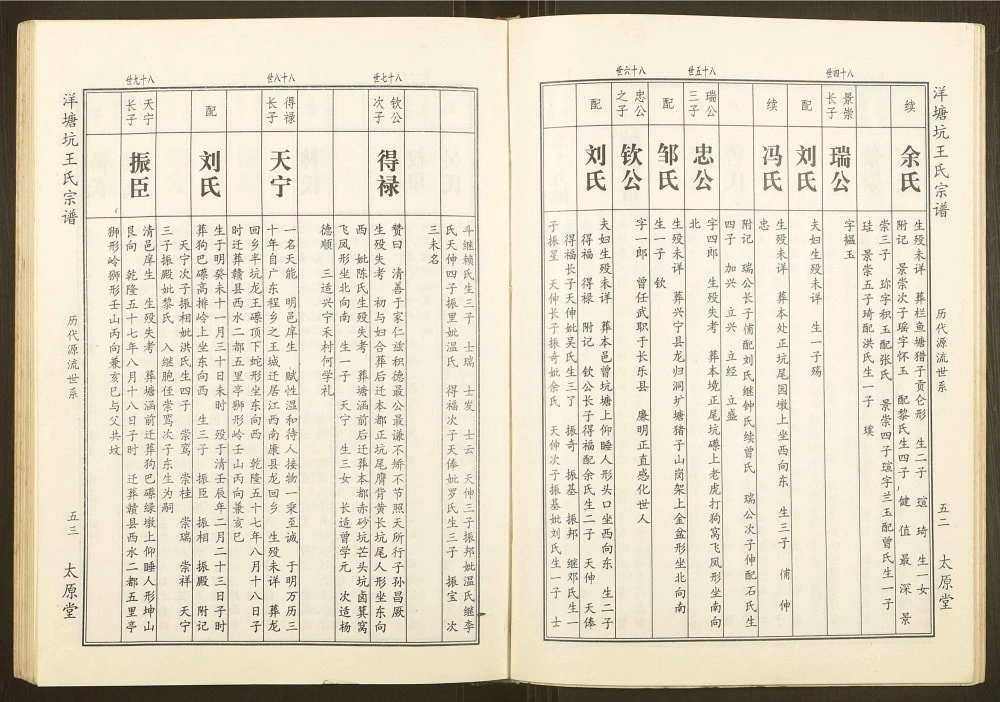 洋塘坑王氏宗谱
历代源流世系
五二
太原堂
续
余氏
生殁未详 葬栏鱼塘猎子贡仑形 生二子 瑄 琦 生一女
附记 景崇次子瑶字怀玉 配黎氏生四子 健 值 最 深 景
崇三子 玠字积玉配张氏 景崇四子瑄字兰玉配曾氏生一子
珪 景崇五子琦配洪氏生一子 璞
八十四世
景崇
长子
瑞公
字韫玉
配
刘氏
夫妇生殁未详 生一子殇
续
冯氏
生殁未详 葬本处正坑尾园墩上坐西向东 生三子 俌 伸
忠
附记 瑞公长子俌配刘氏继钟氏续曾氏 瑞公次子伸配石氏生
四子 加兴 立兴 立经 立盛
八十五世
瑞公
三子
忠公
字四郎 生殁失考 葬本境正尾坑磜上老虎打狗窝飞凤形坐南向
北
配
邹氏
生殁未详 葬兴宁县龙归洞圹塘猪子山岗架上金盆形坐北向南
生一子 钦
八十六世
忠公
之子
钦公
字一郎 曾任武职于长乐县 廉明正直感化世人
配
刘氏
夫妇生殁未详 葬本邑曾坑塘上仰睡人形头口坐西向东 生二子
得福 得禄 附记 钦公长子得福配余氏生二子 天伸 天俸
得福长子天伸妣吴氏生三了 振奇 振基 振邦 继邓氏生一
子振星 天伸长子振奇妣余氏 天伸次子振基妣刘氏生一子 士
洋塘坑王氏宗谱
历代源流世系
五三
太原堂
斗继赖氏生三子 士瑞 士发 士云 天伸三子振邦妣温氏继李
氏天伸四子振里妣温氏 得福次子天俸妣罗氏生三子 振宝 次
三未名
八十七世
钦公
次子
得禄
赞曰 清善于家仁兹积德最公最谦不矫不节照天所行子孙昌厥
生殁失考 初与妇合葬后迁本都正坑尾膺背黄长坑尾人形坐东向
西 妣陈氏生殁失考 葬塘涵前后迁葬本都赤砂坑芒头坑卤箕窝
飞凤形坐北向南 生一子 天宁 生三女 长适曾学元 次适杨
德顺 三适兴宁禾村何学礼
八十八世
得禄
长子
天宁
一名天能 明邑庠生 赋性温和待人接物一秉至诚 于明万历三
十年自广东程乡之王城迁居江西南康县龙回乡 生殁未详 葬龙
回乡半坑龙王磜顶下蛇形坐东向西 乾隆五十七年八月十八日子
时迁葬赣县西水二都五里亭狮形岭壬山丙向兼亥巳
配
刘氏
生于明癸未十一月三十日未时 殁于清壬辰年二月二十三日子时
葬狗巴磜高排岭上坐东向西 生三子 振臣 振相 振殿 附记
天宁次子振相妣洪氏生四子 崇鸾 崇桂 崇瑞 崇祥 天宁
三子振殿妣黎氏 入继胞侄崇鸾次子东生为嗣
八十九世
天宁
长子
振臣
清邑庠生 生殁失考 葬塘涵前迁葬狗巴磜绿墩上仰睡人形坤山
艮向 乾隆五十七年八月十八日子时 迁葬赣县西水二都五里亭
狮形岭狮形壬山丙向兼亥巳与父共坟